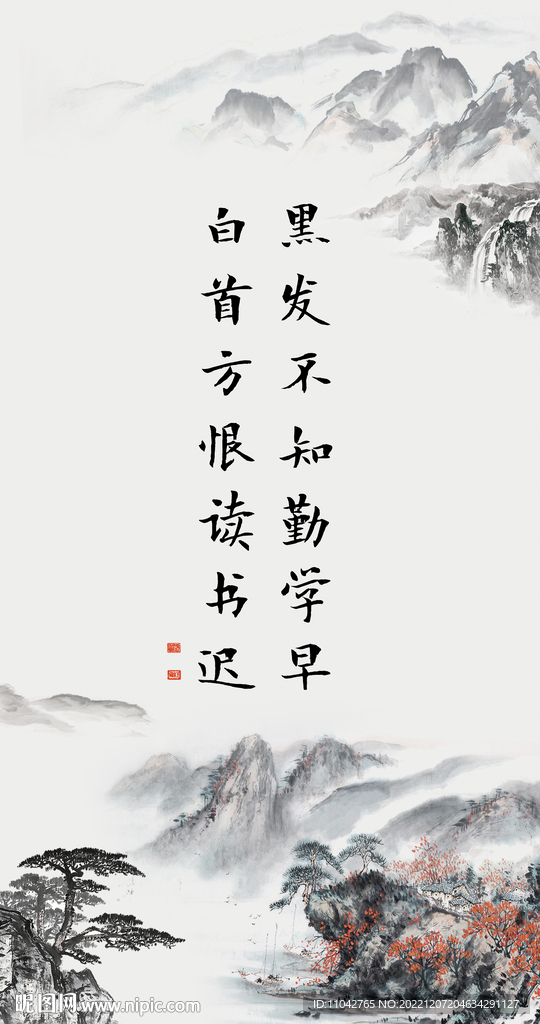 黑发不知勤学早
白首方恨读书迟
昵图网 www.nipic.com
ID:11042765 NO:20221207204634291127